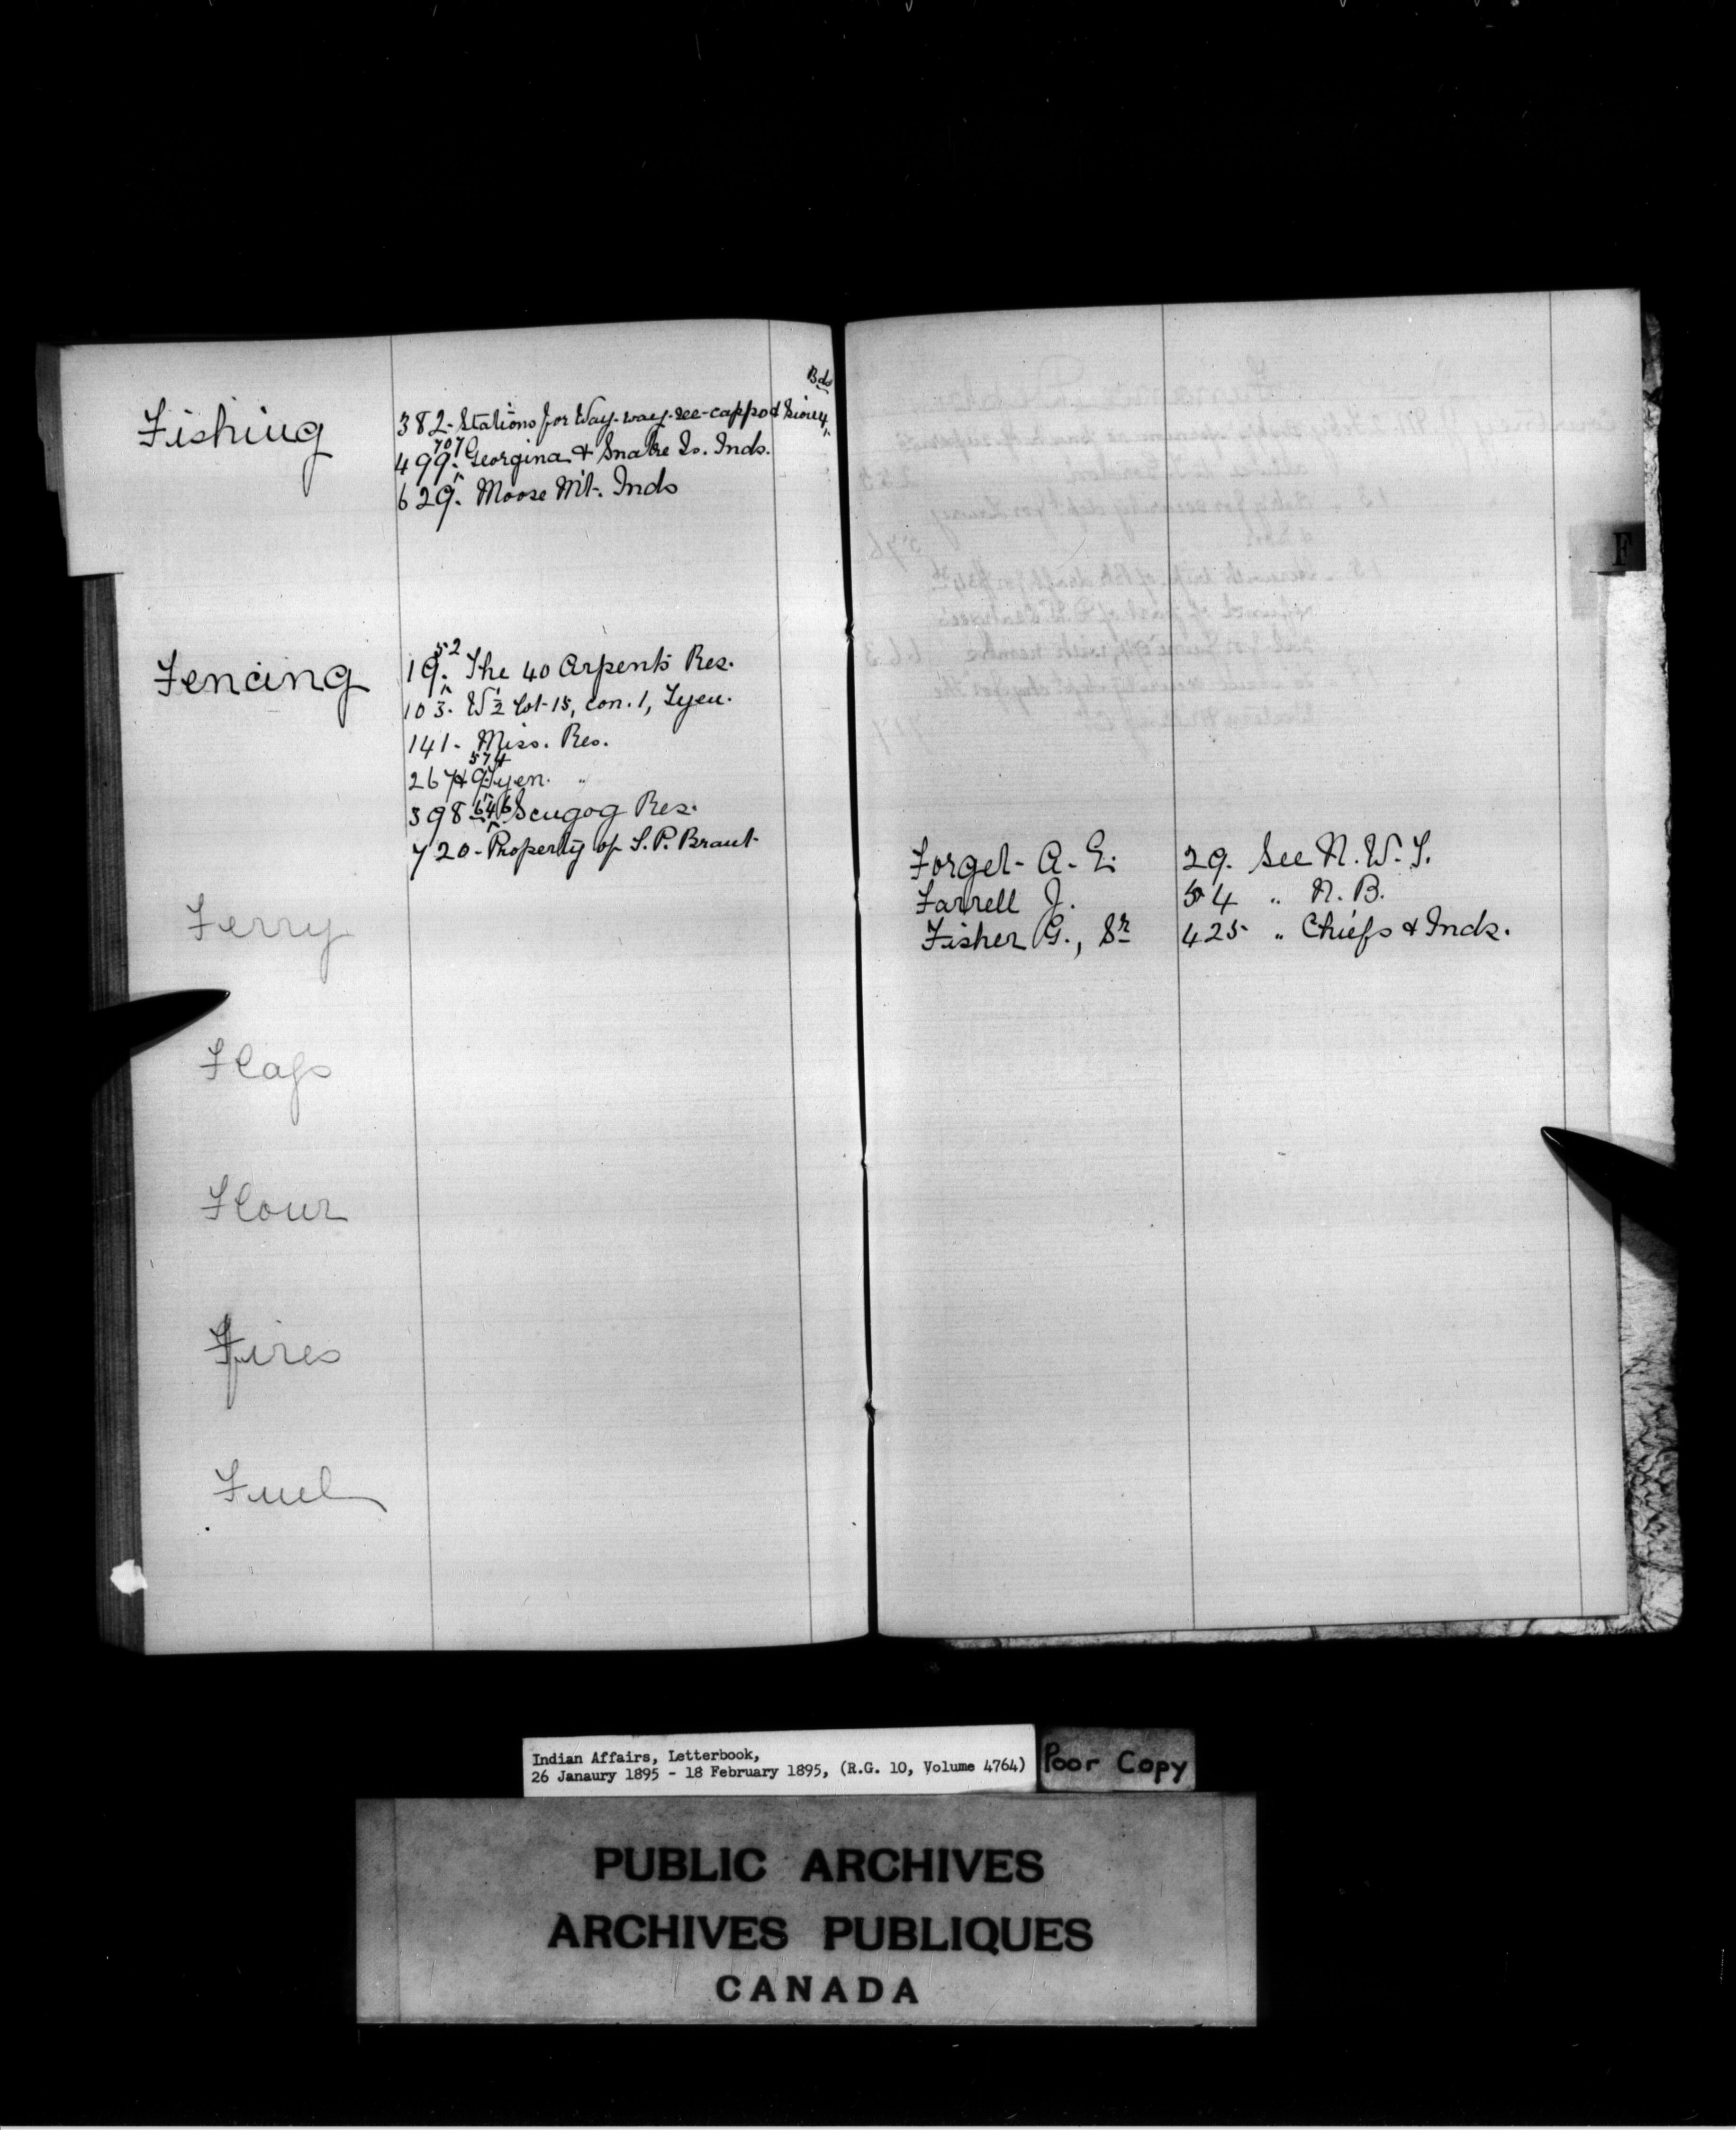 Bds
Fishing
382. Stations for Way-way-see-cappo & Sioux
707
499. Georgina & Snake Is. Inds.
629. Moose Mt. Inds
Fencing
52
19. The 40 Arpents Res.
103. W ½ Lot 15, con. 1, Tyen.
141. Miss. Res.
574
267 & 9. Tyen. "
398 646 Scugog Res.
720. Property of S. P. Brant
Ferry
Flags
Flour
Fires
Fuel
F
Forget A. E. 29. See N. W. T.
Farrell J. 54 " N. B.
Fisher G., Sr 425 " Chiefs & Inds.
Indian Affairs, Letterbook,
26 Janaury 1895 - 18 February 1895, (R.G. 10, Volume 4764)
Poor Copy
PUBLIC ARCHIVES
ARCHIVES PUBLIQUES
CANADA